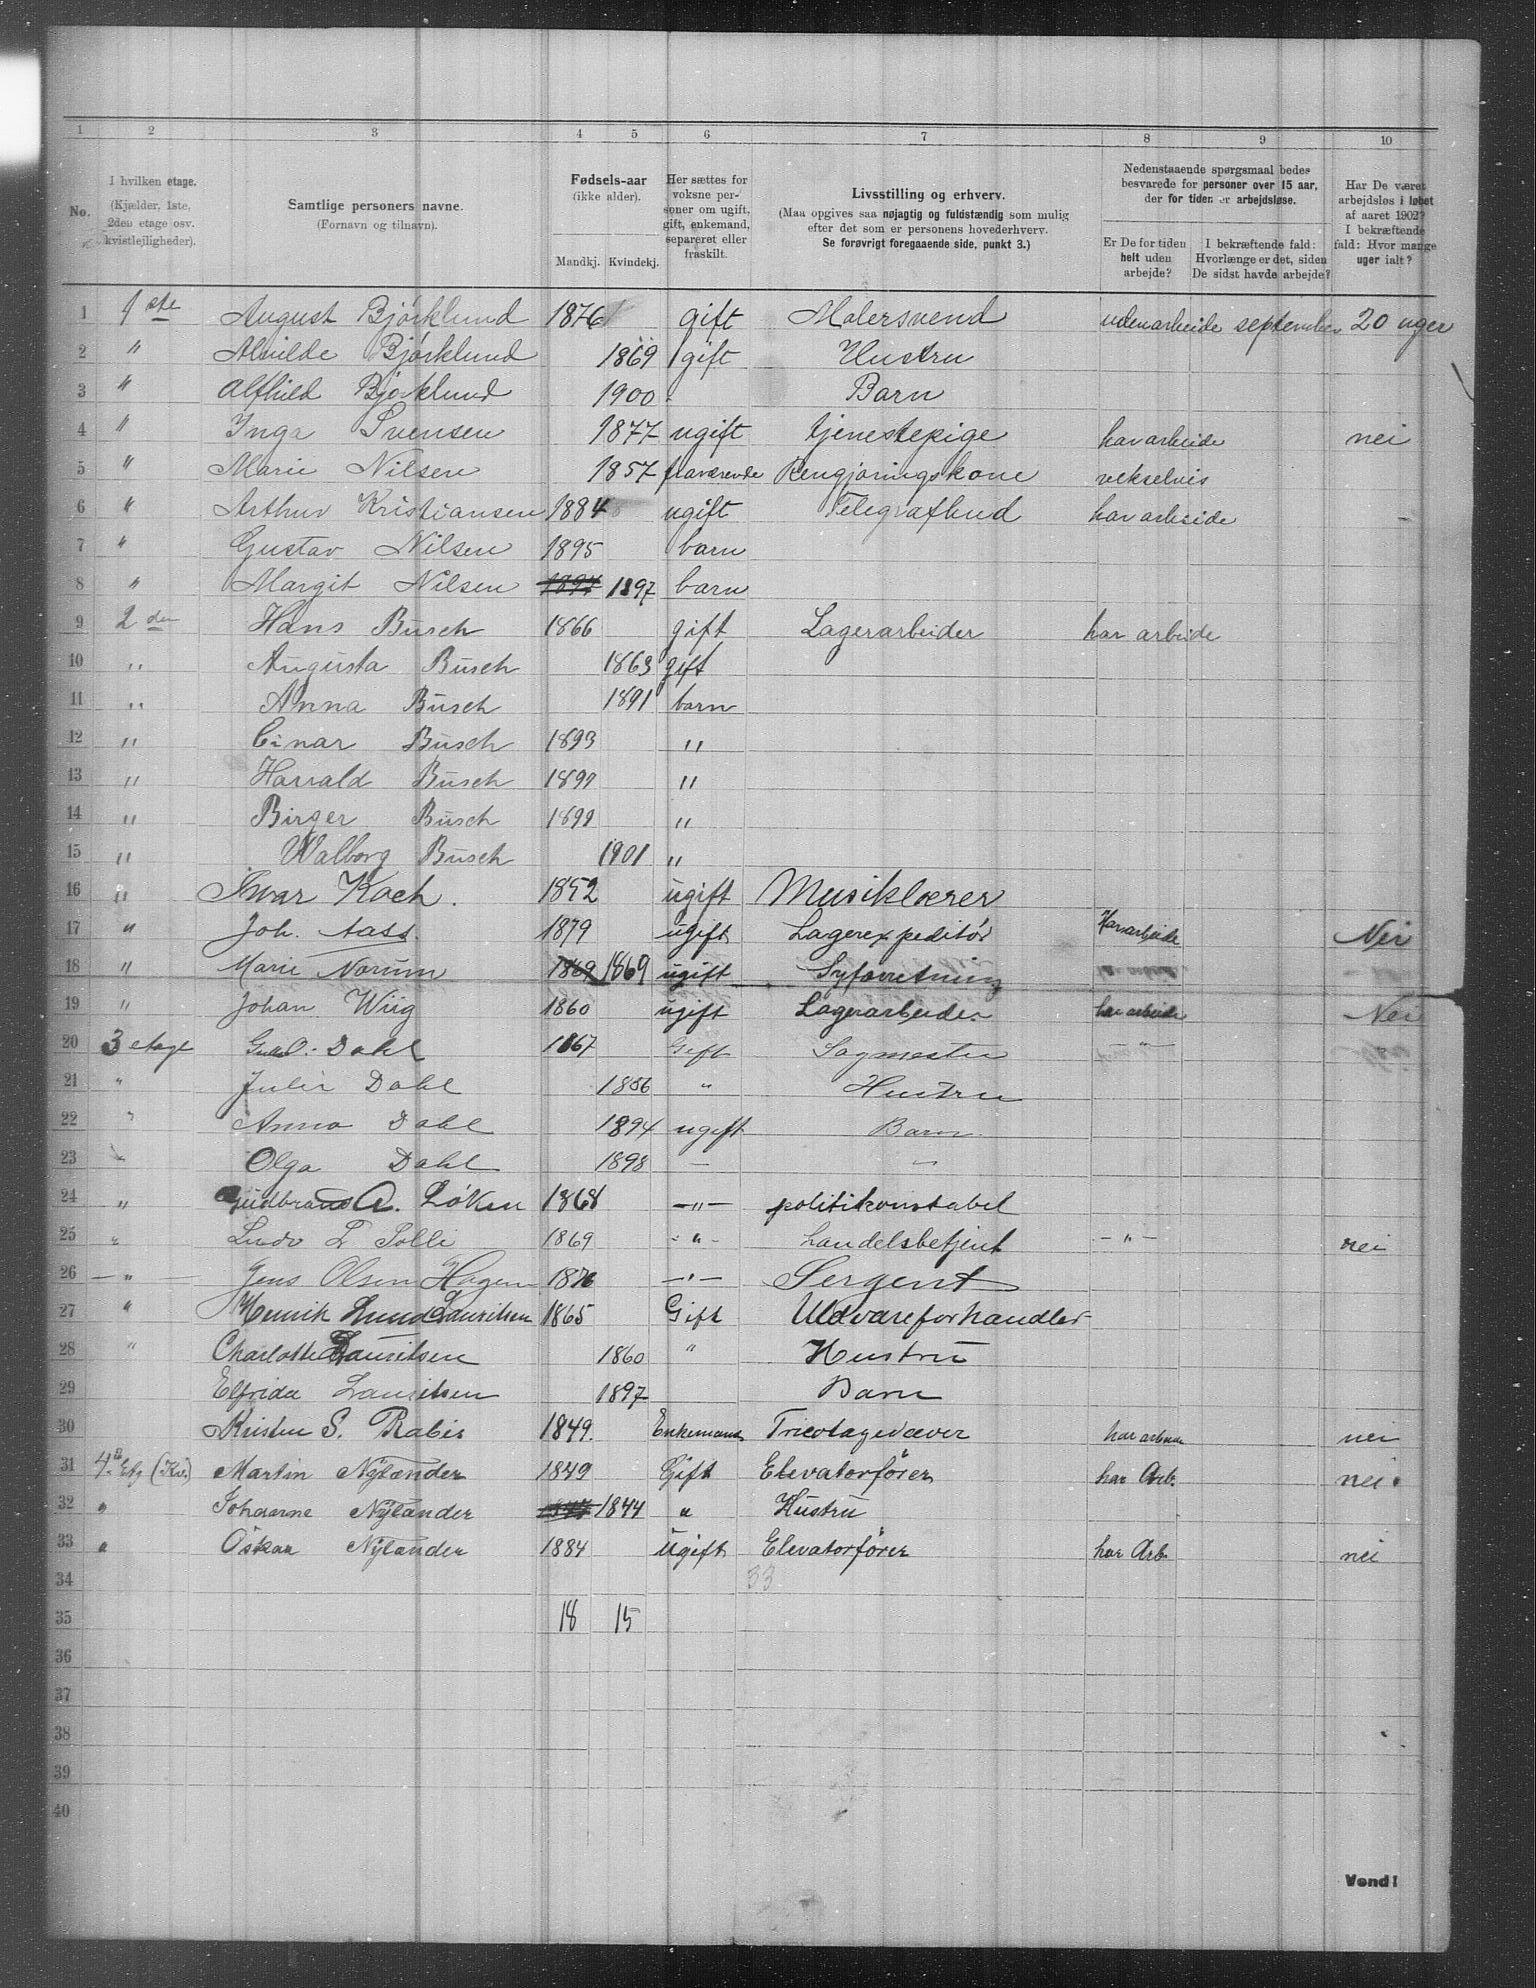 1 2 3 4 5 6 7 8 9 10
No. I hvilken etage. (Kjælder, 1ste, 2den etage osv. kvistlejligheder). Samtlige personers navne. (Fornavn og tilnavn). Fødsels-aar (ikke alder). Mandkj. Kvindekj. Her sættes for voksne personer om ugift, gift, enkemand, separeret eller fraskilt. Livsstilling og erhverv. (Maa opgives saa nøjagtig og fuldstændig som mulig efter det som er personens hovederhverv. Se forøvrigt foregaaende side, punkt 3.) Nedenstaaende spørgsmaal bedes besvarede for personer over 15 aar, der for tiden er arbejdsløse. Er De for tiden helt uden arbejde? I bekræftende fald: Hvorlænge er det, siden De sidst havde arbejde? Har De været arbejdsløs i løbet af aaret 1902? I bekræftende fald: Hvor mange uger ialt?
1 1ste August Bjørklund 1876 gift Malersvend uden arbeide september 20 uger
2 " Alvilde Bjørklund 1869 gift Hustru
3 " Alfhild Bjørklund 1900 - Barn
4 " Inga Svensen 1877 ugift tjenestepige har arbeide nei
5 " Marie Nilsen 1857 fraværende Rengjøringskone vekselvis
6 " Arthur Kristiansen 1884 ugift Telegrafbud har arbeide -
7 " Gustav Nilsen 1895 barn
8 " Margit Nilsen 1897 1897 barn
9 2den Hans Busch 1866 gift Lagerarbeider har arbeide
10 " Augusta Busch 1863 gift
11 " Anna Busch 1891 barn
12 " Einar Busch 1893 "
13 " Harrald Busch 1897 "
14 " Birger Busch 1899 "
15 " Walborg Busch 1901 "
16 " Ivar Koch. 1852 ugift Musiklærer
17 " Joh. Aass. 1879 ugift Lagerexpeditør Har arbeide Nei
18 " Marie Norum 1869 1869 ugift Syforretning
19 " Johan Wiig 1860 ugift Lagerarbeider har arbeide Nei
20 3 etage Dahl 1867 Gift Sagmester - " -
21 " Julie Dahl 1856 " Hustru
22 " Anna Dahl 1894 ugift Barn
23 " Olga Dahl 1898 - "
24 " Gudbrand A. Løken 1868 - " - politikonstabel
25 " Ludv L Tolli 1869 - " - handelsbetjent - " - nei
26 - " - Jens Olsen Hagen 1876 - " - Sergent
27 " Henrik Lund Lauritsen 1865 Gift Uldvareforhandler
28 " Charlotte Lauritsen 1860 " Hustru
29 Elfrida Lauritsen 1897 Barn
30 Kristen S. Rabis 1849. Enkemand Tricotagevæver har arbeide nei
31 4de Etg (Kv.) Martin Nylænder 1849 Gift Elevatorfører har Arb. nei
32 " Johanne Nylander 1844 1844 " Hustru
33 " Oskar Nylander 1884 ugift Elevatorfører har Arb. nei
34 33
35 18 15
36
37
38
39
40
Vend!